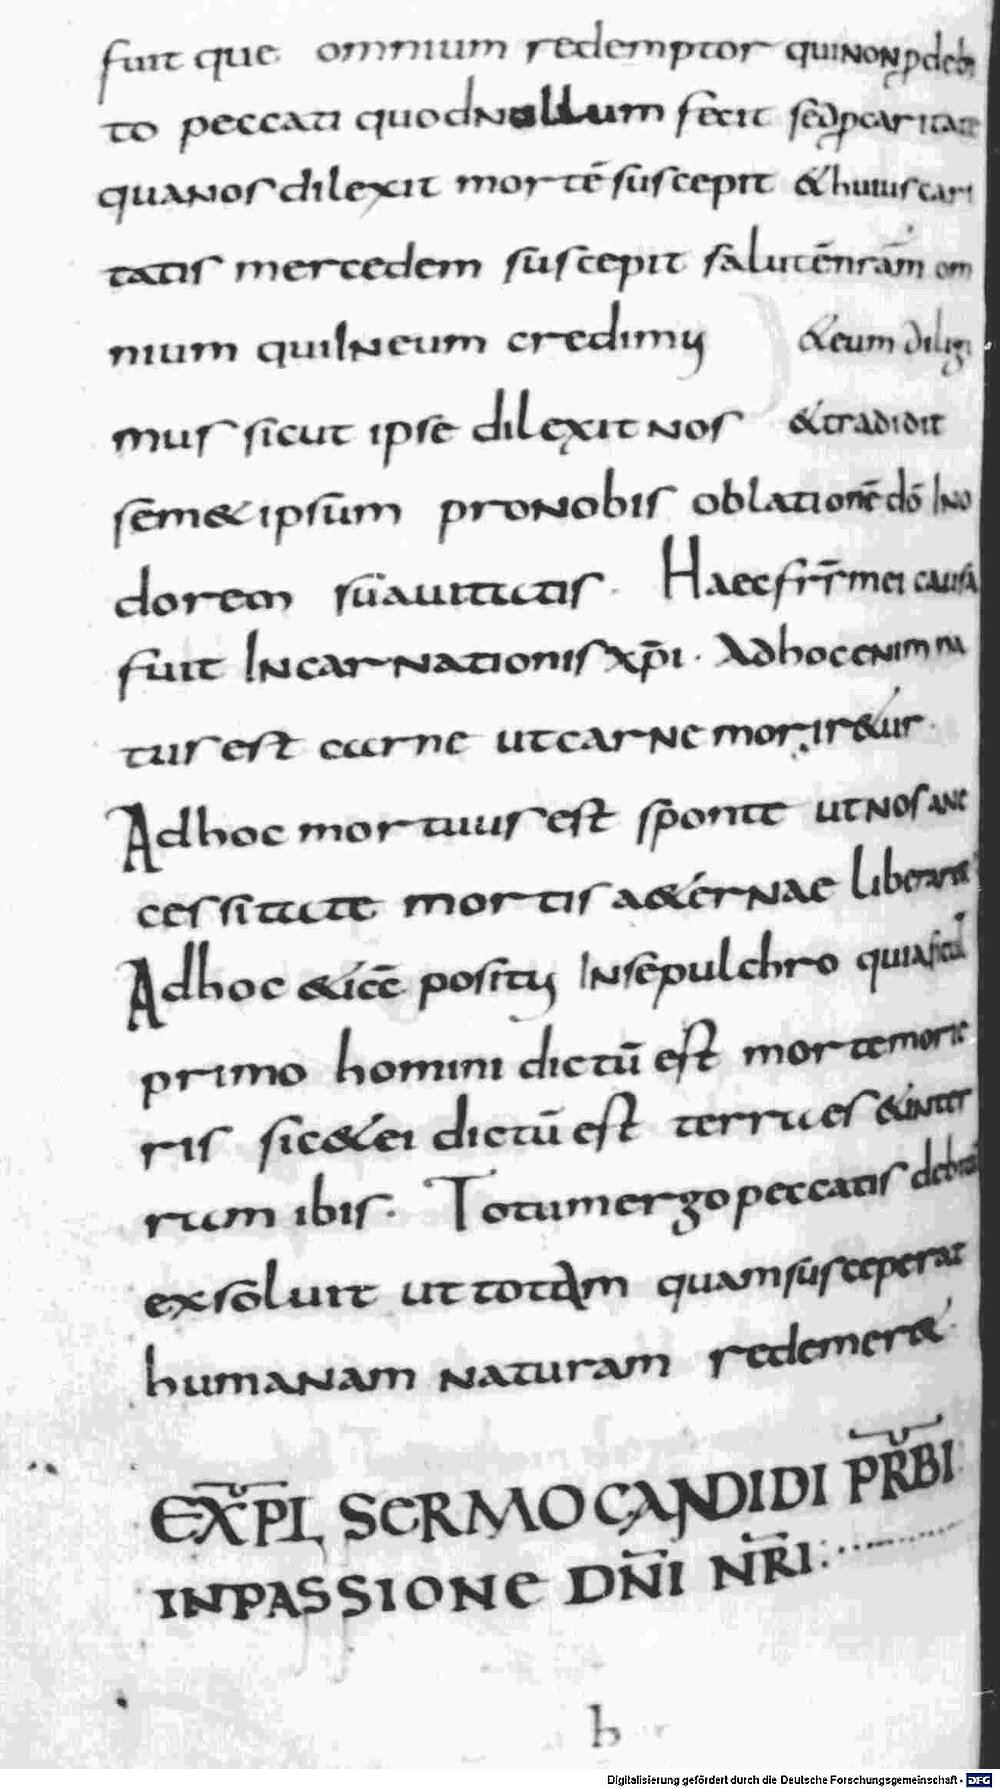 fuit que omnium redemptor qui non p debi
to peccati quod nullum fecit sed p caritate
qua nos dilexit mortē suscepit & huius cari
tatis mercedem suscepit salutē nr̄am om
nium qui In eum credimus & eum diligi
mus sicut ipse dilexit nos & tradidit
sem&ipsum pro nobis oblationē dō In o
dorem suauitatis. Haec fr̄s mei causa
fuit Incarnationis xp̄i. Ad hoc enim na
tus est carne ut carne morir&ur.
Ad hoc mortuus est sponte ut nos a ne
cessitate mortis a&ernae liberar&
Ad hoc & iacē positus In sepulchro quia sicut
primo homini dictū est morte morie
ris sic & ei dictū est terra es & in ter
ram ibis. Totum ergo peccatis debitū
exsoluit ut totam quam susceperat
humanam naturam redemer&.
EXPL SERMO CANDIDI PR̄BI
IN PASSIONE DN̄I NR̄I:
b
Digitalisierung gefördert durch die Deutsche Forschungsgemeinschaft - DFG